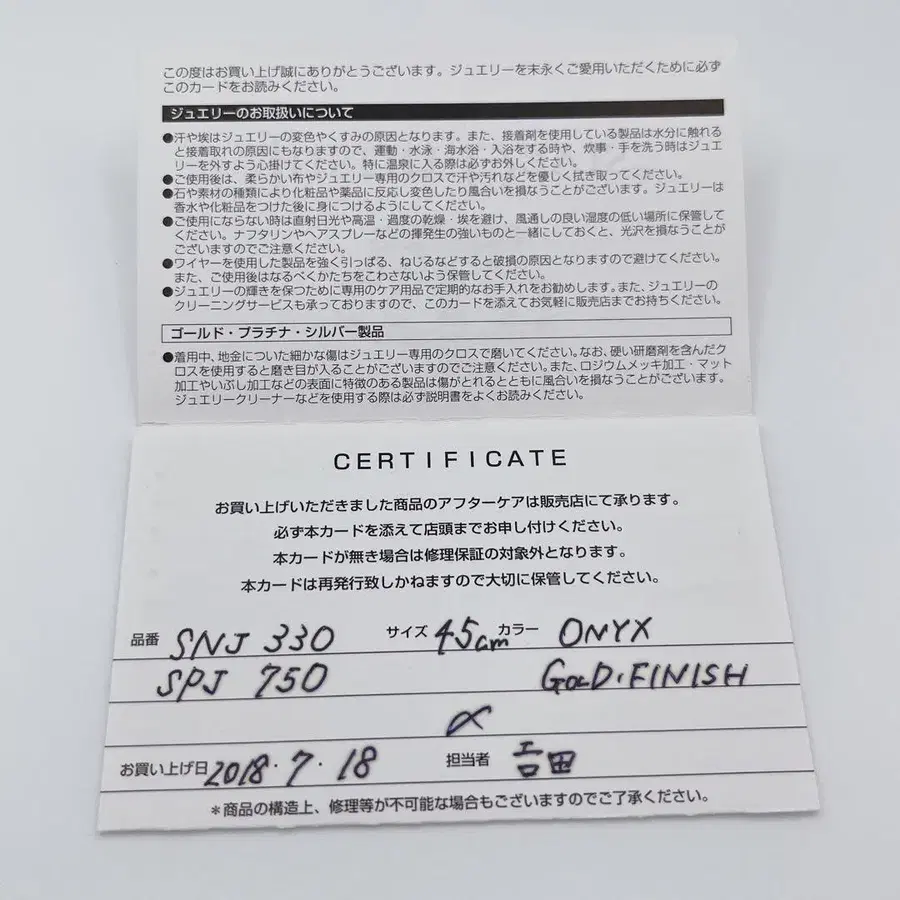 この度はお買い上げ誠にありがとうございます。ジュエリーを末永くご愛用いただくために必ず
このカードをお読みください。
ジュエリーのお取扱いについて
●汗や埃はジュエリーの変色やくすみの原因となります。また、接着剤を使用している製品は水分に触れる
と接着取れの原因にもなりますので、運動・水泳・海水浴・入浴をする時や、炊事・手を洗う時はジュエ
リーを外すよう心掛けてください。特に温泉に入る際は必ずお外しください。
●ご使用後は、柔らかい布やジュエリー専用のクロスで汗や汚れなどを優しく拭き取ってください。
●石や素材の種類により化粧品や薬品に反応し変色したり風合いを損なうことがございます。ジュエリーは
香水や化粧品をつけた後に身につけるようにしてください。
●ご使用にならない時は直射日光や高温・過度の乾燥・埃を避け、風通しの良い湿度の低い場所に保管して
ください。ナフタリンやヘアスプレーなどの揮発生の強いものと一緒にしておくと、光沢を損なうことが
ございますのでご注意ください。
●ワイヤーを使用した製品を強く引っぱる、ねじるなどすると破損の原因となりますので避けてください。
また、ご使用後はなるべくかたちをこわさないよう保管してください。
●ジュエリーの輝きを保つために専用のケア用品で定期的なお手入れをお勧めします。また、ジュエリーの
クリーニングサービスも承っておりますので、このカードを添えてお気軽に販売店までお持ちください。
ゴールド・プラチナ・シルバー製品
●着用中、地金についた細かな傷はジュエリー専用のクロスで磨いてください。なお、硬い研磨剤を含んだク
ロスを使用すると磨き目が入ることがございますのでご注意ください。また、ロジウムメッキ加工・マット
加工やいぶし加工などの表面に特徴のある製品は傷がとれるとともに風合いを損なうことがございます。
ジュエリークリーナーなどを使用する際は必ず説明書をよくお読みください。
CERTIFICATE
お買い上げいただきました商品のアフターケアは販売店にて承ります。
必ず本カードを添えて店頭までお申し付けください。
本カードが無き場合は修理保証の対象外となります。
本カードは再発行致しかねますので大切に保管してください。
品番 SNJ 330 サイズ 45cm カラー ONYX
SPJ 750 GOLD・FINISH
〆
お買い上げ日 2018・7・18 担当者 吉田
＊商品の構造上、修理等が不可能な場合もございますのでご了承ください。